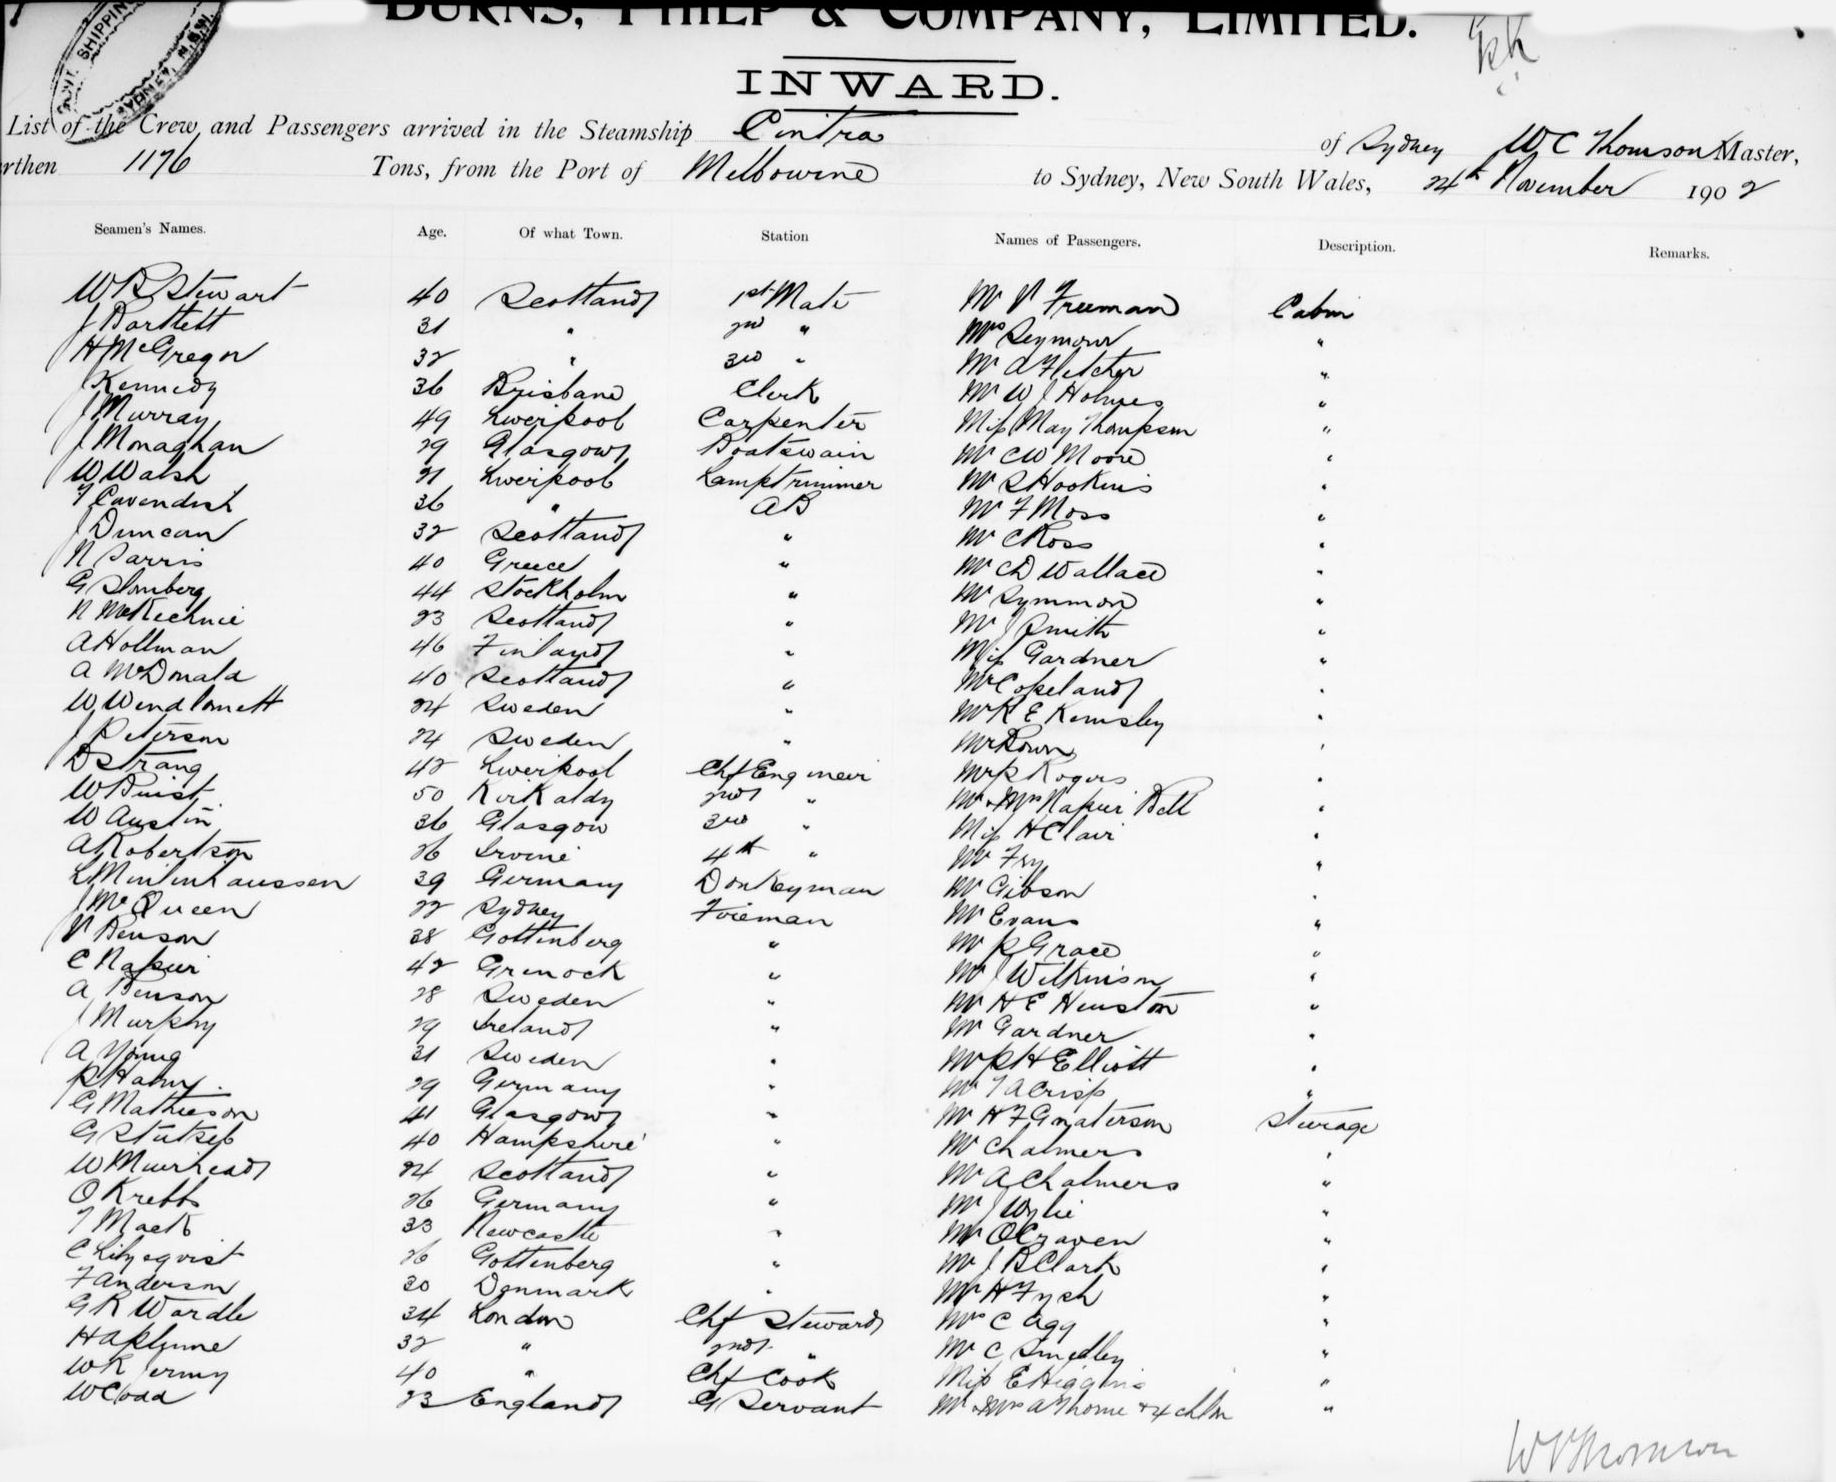 BURNS, PHILP & COMPANY, LIMITED.
INWARD.
List of the Crew and Passengers arrived in the Steamship Cintra of Sydney W C Thomson Master,
rthen 1176 Tons, from the Port of Melbourne to Sydney, New South Wales, 24th November 1902
Seamen's Names. Age. Of what Town. Station Names of Passengers. Description. Remarks.
W B Stewart 40 Scotland 1st Mate Mr V Freeman Cabin
J Bartlett 31 " 2nd " Mrs Seymour "
H McGregor 32 " 3rd " Mr A Fletcher "
J Kennedy 36 Brisbane Clerk Mr W J Holmes "
J Murray 49 Liverpool Carpenter Miss May Thompson "
J Monaghan 29 Glasgow Boatswain Mr C W Moore "
W Walsh 21 Liverpool Lamptrimmer Mr S Hookins "
T Cavendish 36 " AB Mr F Moss "
J Duncan 32 Scotland " Mr C Ross "
N Sarris 40 Greece " Mr C D Wallace "
G Slomberg 44 Stockholm " Mr Symmon "
N McKechnie 23 Scotland " Mr J Smith "
A Hollman 46 Finland " Miss Gardner "
A McDonald 40 Scotland " Mr Copeland "
W 24 Sweden " Mr R E Kemsley "
J Peterson 24 Sweden " Mr Bown "
D Strang 42 Liverpool Chf Engineer Mr P Rogers "
W Buist 50 Kirkaldy 2nd " Mr & Mrs Napier Bell "
W Austin 36 Glasgow 3rd " Miss H Clair "
A Robertson 26 Irvine 4th " Mr Fry "
L 39 Germany Donkeyman Mr Gibson "
J McQueen 22 Sydney Fireman Mr Evans "
V Benson 38 Gottenberg " Mr P Grace "
C Napier 42 Grenock " Mr J Wilkinson "
A Benson 28 Sweden " Mr H E Heuston "
J Murphy 29 Ireland " Mr Gardner "
A Young 31 Sweden " Mr P H Elliott "
P 29 Germany " Mr T A Crisp "
G Mathieson 41 Glasgow " Mr H F Steerage
G 40 Hampshire " Mr Chalmers "
W Muirhead 24 Scotland " Mr A Chalmers "
O Krebbs 26 Germany " Mr J Wylie "
T Mack 33 Newcastle " Mr O Craven "
C Lilyeqvist 26 Gottenberg " Mr J B Clark "
F Anderson 30 Denmark " Mr H Fysh "
G R Wardle 34 London Chf Steward Mrs C Agg "
H A Plynne 32 " 2nd " Mr C Smedley "
W R Jermy 40 " Chf Cook Miss E Higgins "
W Codd 23 England G Servant Mr & Mrs A Thorne & 4 chldn "
W C Thomson